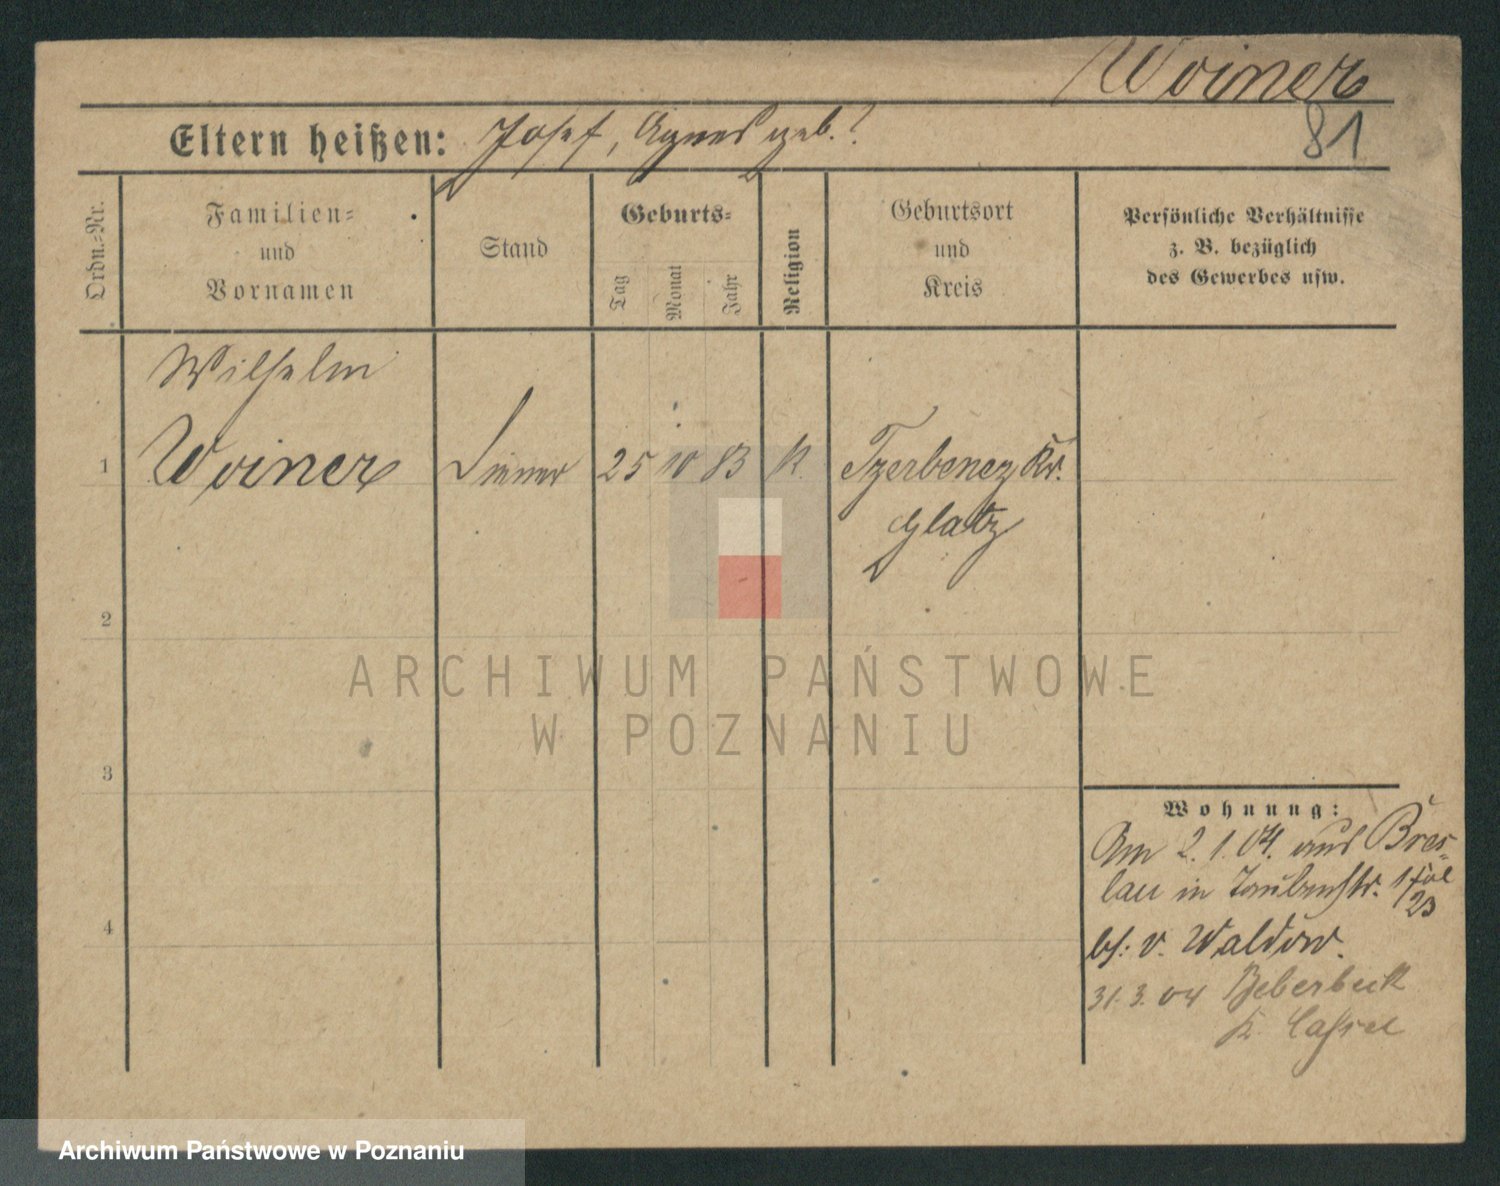 Woiner
Eltern heißen: Josef, Agnes geb.?
81
Ordn.-Nr.
Familien-
und
Vornamen
Stand
Geburts-
Tag
Monat
Jahr
Religion
Geburtsort
und
Kreis
Persönliche Verhältnisse
z. B. bezüglich
des Gewerbes usw.
Wilhelm
1 Woiner Diener 25 10 83 k. Tzerbeney Kr.
Glatz
2
3
4
Wohnung:
Am 2.1.04. aus Bres-
lau in Taubenstr. 1
23
bf: v. Waldow.
31.3.04 Beberbeck
K. Cassel
ARCHIWUM PAŃSTWOWE
W POZNANIU
Archiwum Państwowe w Poznaniu